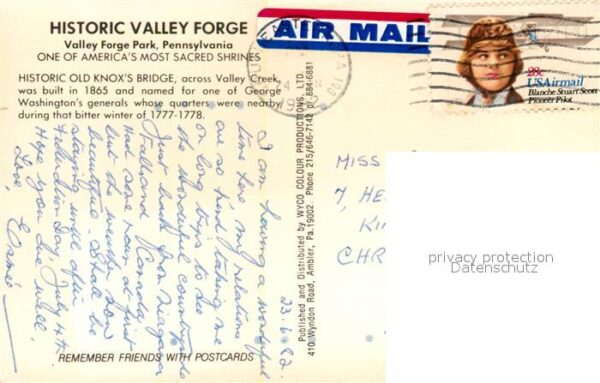 HISTORIC VALLEY FORGE
Valley Forge Park, Pennsylvania
ONE OF AMERICA'S MOST SACRED SHRINES
HISTORIC OLD KNOX'S BRIDGE, across Valley Creek,
was built in 1865 and named for one of George
Washington's generals whose quarters were nearby
during that bitter winter of 1777-1778.
AIR MAIL
28c
USAirmail
Blanche Stuart Scott
Pioneer Pilot
23.6.82.
I am having a wonderful
time here, my relations
are so kind taking me
on long trips to see
the wonderful countryside
Just back from Niagara
Falls and Canada,
had some rain at first
but the weather now
beautiful. Shall be
staying until after
Independence Day, July 4th.
Hope you are well.
Love,
Published and Distributed by WYCO COLOUR PRODUCTIONS, LTD.
410 Wyndon Road, Ambler, Pa.19002. Phone 215/646-7142 or 884-6881
MISS
7, HE
KI
CHR
privacy protection
Datenschutz
REMEMBER FRIENDS WITH POSTCARDS